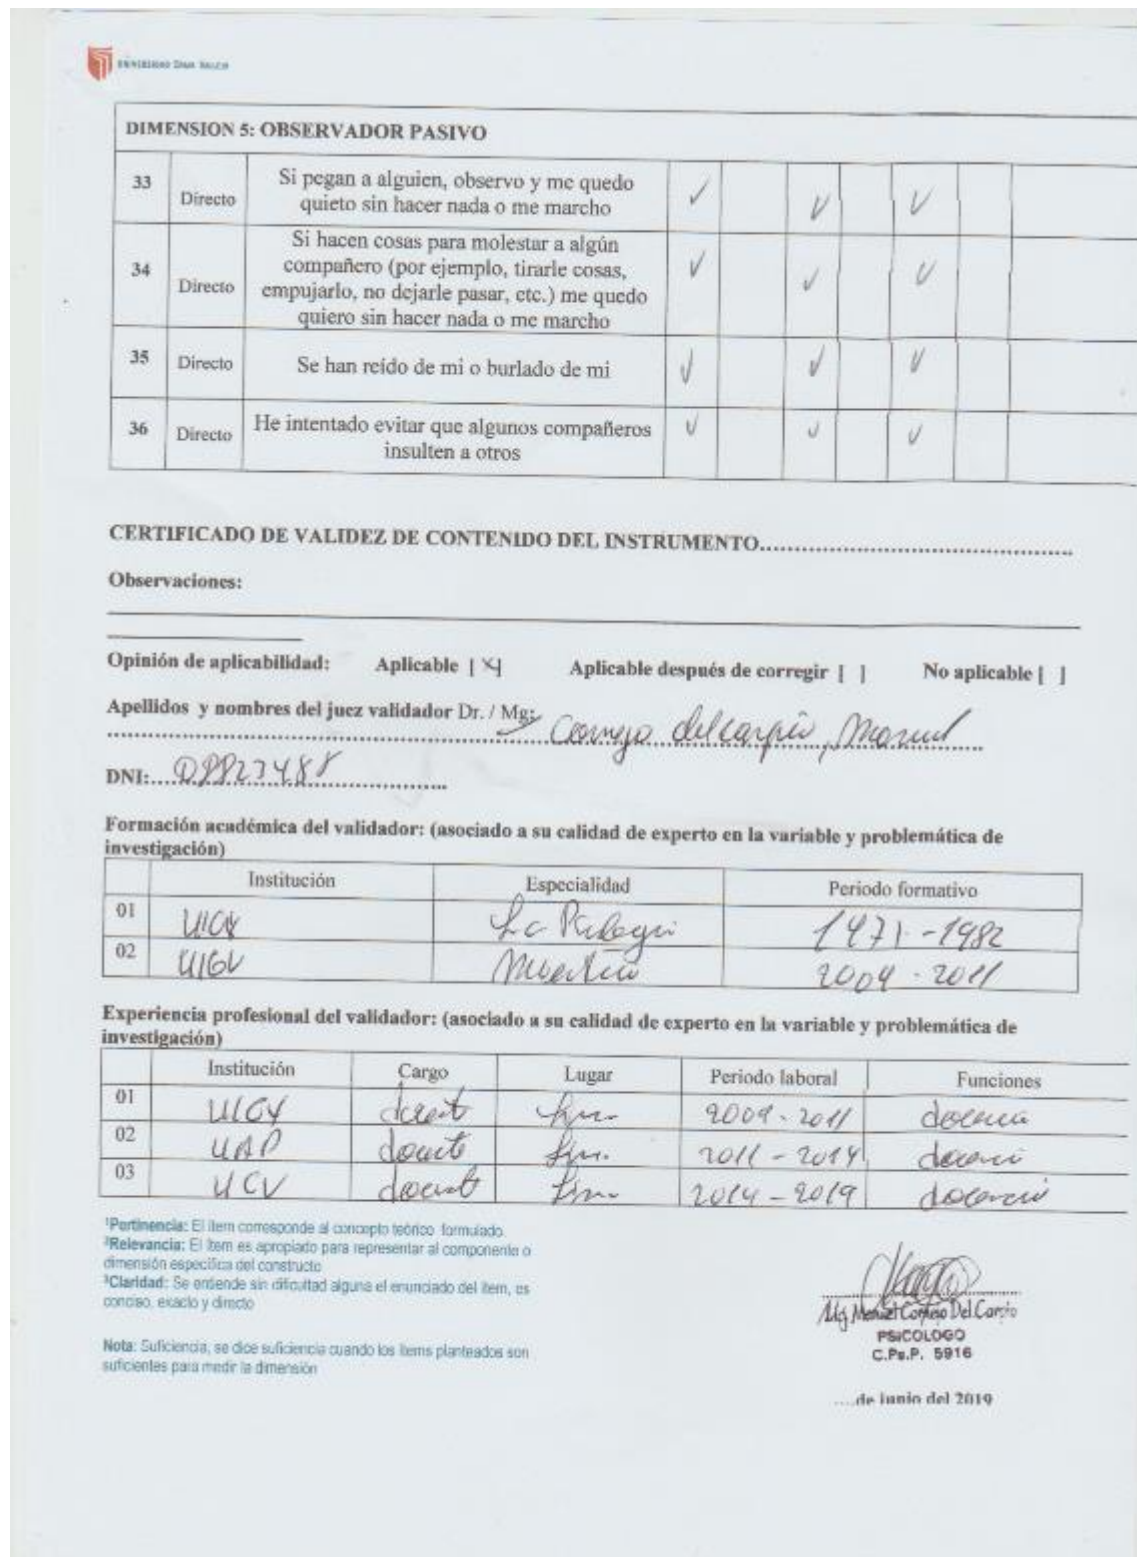 UNIVERSIDAD CÉSAR VALLEJO
DIMENSION 5: OBSERVADOR PASIVO
33 Directo Si pegan a alguien, observo y me quedo
quieto sin hacer nada o me marcho
34 Directo Si hacen cosas para molestar a algún
compañero (por ejemplo, tirarle cosas,
empujarlo, no dejarle pasar, etc.) me quedo
quiero sin hacer nada o me marcho
35 Directo Se han reído de mi o burlado de mi
36 Directo He intentado evitar que algunos compañeros
insulten a otros
CERTIFICADO DE VALIDEZ DE CONTENIDO DEL INSTRUMENTO
Observaciones:
Opinión de aplicabilidad: Aplicable [X] Aplicable después de corregir [ ] No aplicable [ ]
Apellidos y nombres del juez validador Dr. / Mg:
Cornejo del carpio, Manuel
DNI:
Formación académica del validador: (asociado a su calidad de experto en la variable y problemática de
investigación)
Institución Especialidad Periodo formativo
01 1971-1982
02 UIGV Maestria 2009-2011
Experiencia profesional del validador: (asociado a su calidad de experto en la variable y problemática de
investigación)
Institución Cargo Lugar Periodo laboral Funciones
01 UIGV docente Lima 2009-2011 docencia
02 UAP docente Lima 2011-2014 docencia
03 UCV docente Lima 2014-2019 docencia
¹Pertinencia: El ítem corresponde al concepto teórico formulado.
²Relevancia: El ítem es apropiado para representar al componente o
dimensión específica del constructo
³Claridad: Se entiende sin dificultad alguna el enunciado del ítem, es
conciso, exacto y directo
Nota: Suficiencia, se dice suficiencia cuando los ítems planteados son
suficientes para medir la dimensión
Mg. Manuel Cornejo Del Carpio
PSICOLOGO
C.Ps.P. 5916
....de junio del 2019